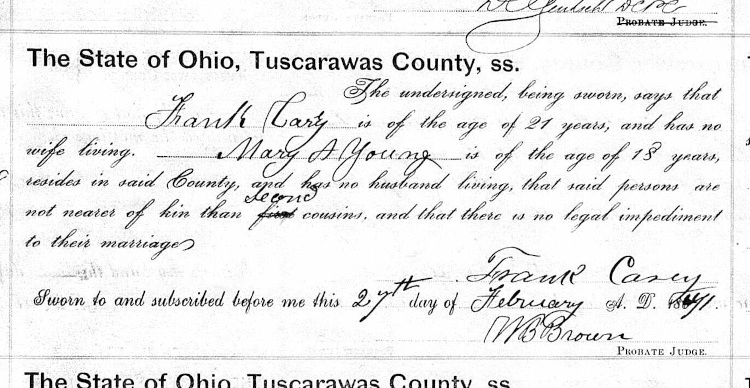 PROBATE JUDGE.
The State of Ohio, Tuscarawas County, ss.
The undersigned, being sworn, says that
Frank Cary is of the age of 21 years, and has no
wife living. Mary A Young is of the age of 18 years,
resides in said County, and has no husband living, that said persons are
second
not nearer of kin than first cousins, and that there is no legal impediment
to their marriage
Frank Casey
Sworn to and subscribed before me this 27th day of February A. D. 1871.
W B Brown
PROBATE JUDGE.
The State of Ohio, Tuscarawas County, ss.